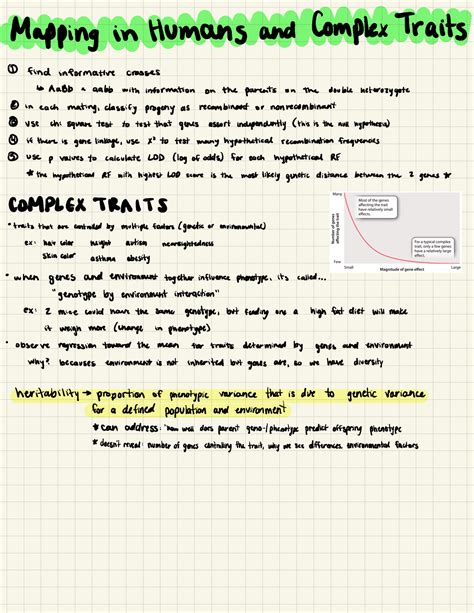 Mapping in Humans and Complex Traits
① find informative crosses
↳ AaBb × aabb with information on the parents on the double heterozygote
② in each mating, classify progeny as recombinant or nonrecombinant
③ use chi square test to test that genes assort independently (this is the null hypothesis)
④ if there is gene linkage, use X² to test many hypothetical recombination frequences
⑤ use p valves to calculate LOD (log of odds) for each hypothetical RF
* the hypothetical RF with highest LOD score is the most likely genetic distance between the 2 genes *
COMPLEX TRAITS
* traits that are controlled by multiple factors (genetic or environmental)
ex: hair color height autism nearsightedness
skin color asthma obesity
Many
Number of genes affecting the trait
Few
Most of the genes
affecting the trait
have relatively small
effects.
For a typical complex
trait, only a few genes
have a relatively large
effect.
Small
Magnitude of gene effect
Large
* when genes and environment together influence phenotype, its called...
"genotype by environment interaction"
ex: 2 mice could have the same genotype, but feeding one a high fat diet will make
it weigh more (change in phenotype)
* observe regression toward the mean for traits determined by genes and environment
why? becauses environment is not inherited but genes are, so we have diversity
heritability → proportion of phenotypic variance that is due to genetic variance
for a defined population and environment
* can address: how well does parent geno-/phenotype predict offspring phenotype
* doesn't reveal: number of genes controlling the trait, why we see differences, environmental factors